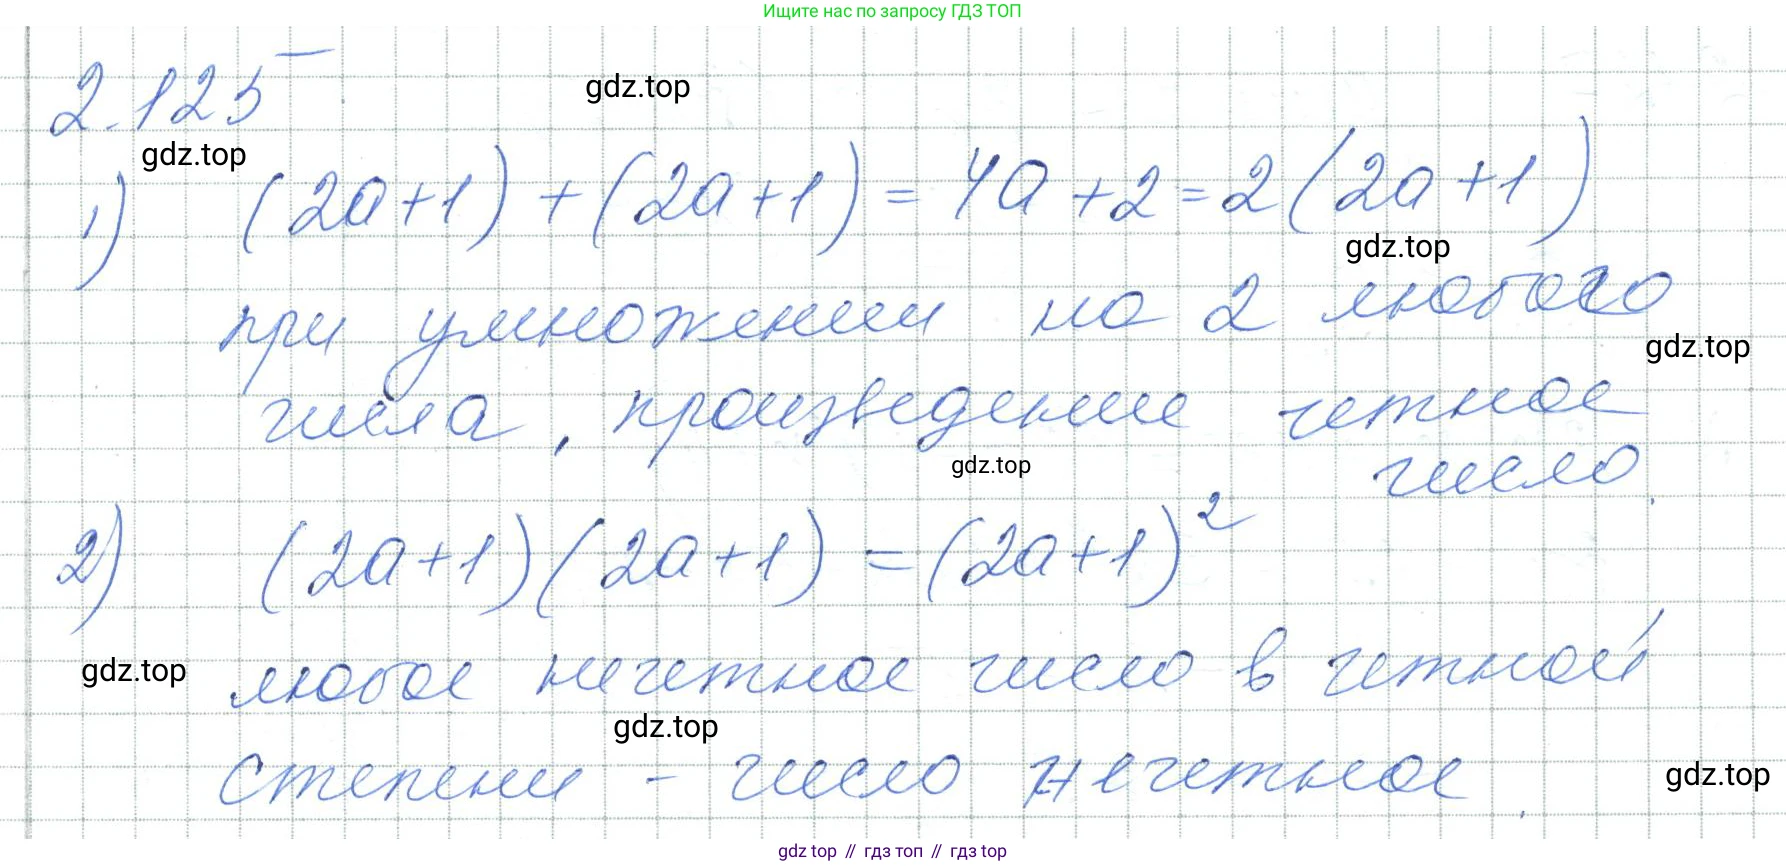 Ищите нас по запросу ГДЗ ТОП
2.125
gdz.top
gdz.top
1) (2a+1)+(2a+1)=4a+2=2(2a+1)
gdz.top
при умножении на 2 любого
gdz.top
числа, произведение четное
число.
gdz.top
2) (2a+1)(2a+1)=(2a+1)²
любое нечетное число в четной
gdz.top
gdz.top
степени - число нечетное.
gdz.top
gdz top // гдз топ // гдз top